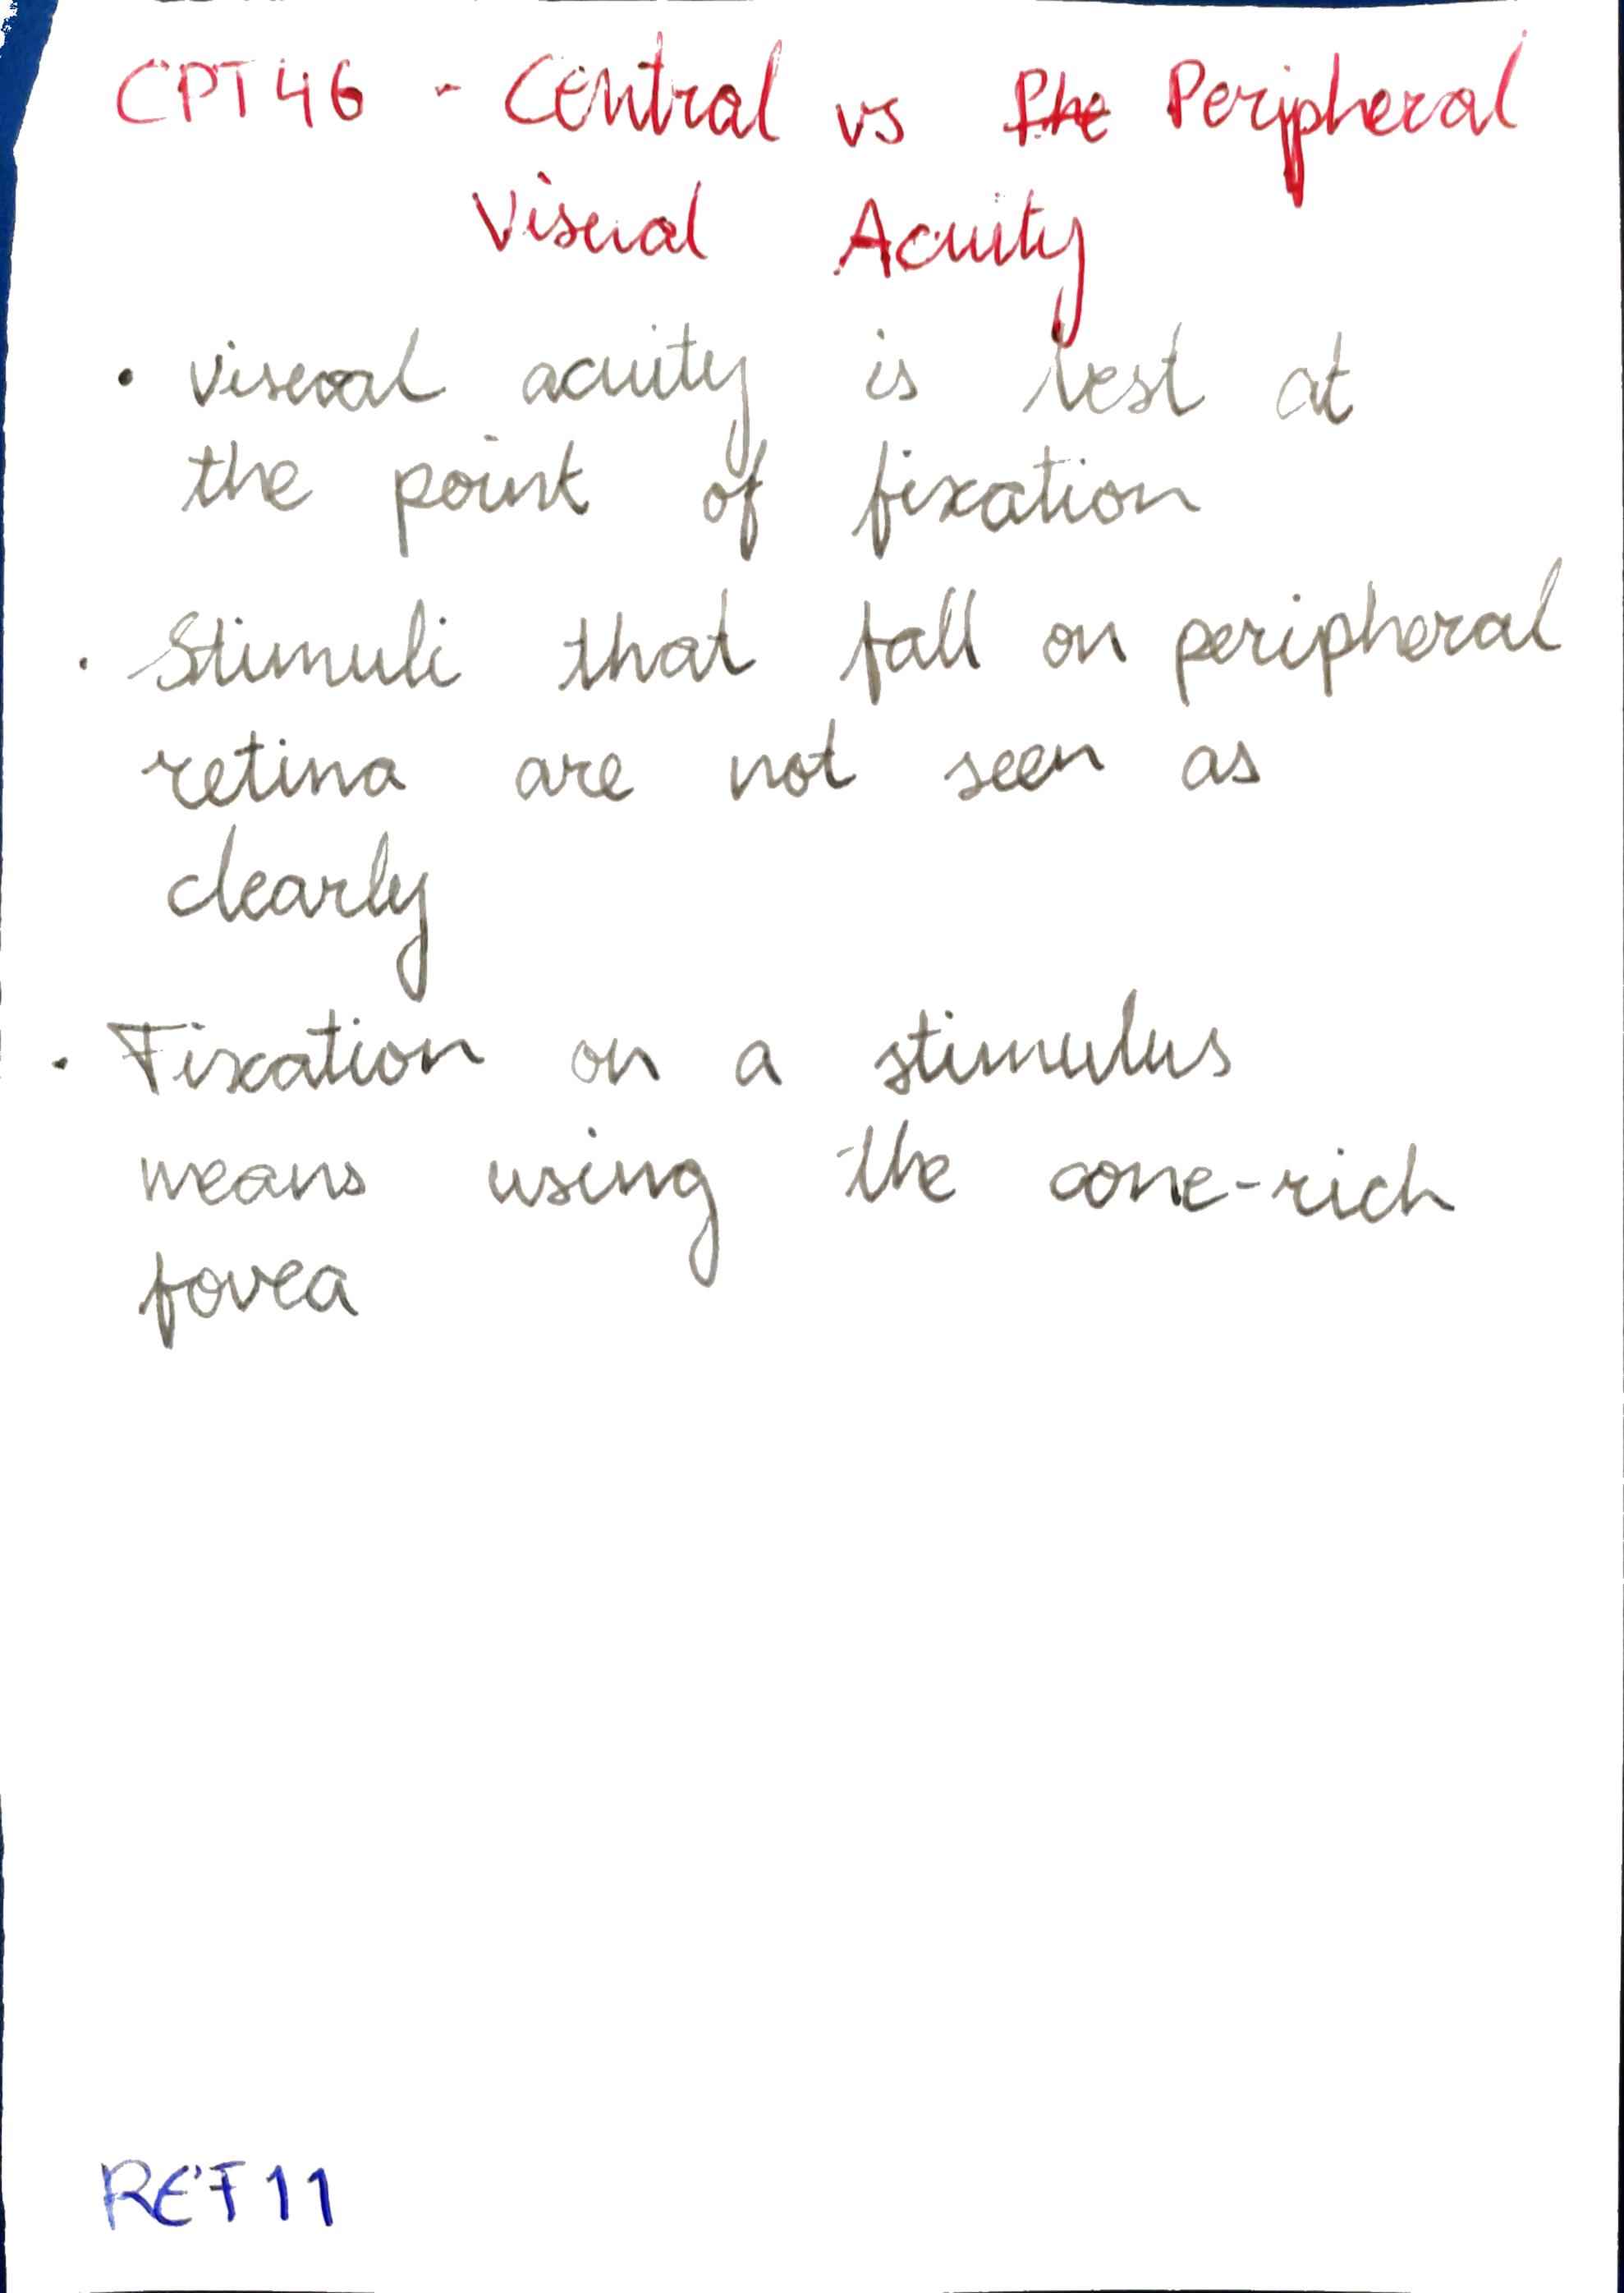 CPT46 - Central vs Phe Peripheral
Visual Acuity
• visual acuity is best at
the point of fixation
• Stimuli that fall on peripheral
retina are not seen as
clearly
• Fixation on a stimulus
means using the cone-rich
fovea
REF11